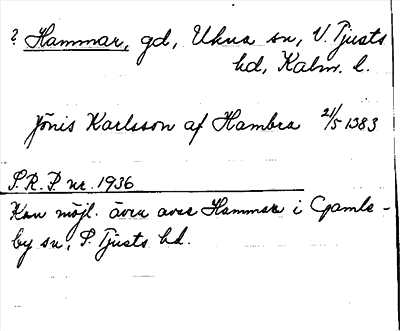 ? Hammar, gd, Ukna sn, V. Tjusts
hd, Kalm. l.
Jönis Karlsson af Hambra 21/5 1383
S.R.P. nr. 1936
Kan möjl. även avse Hammar i Gamle-
by sn, S. Tjusts hd.